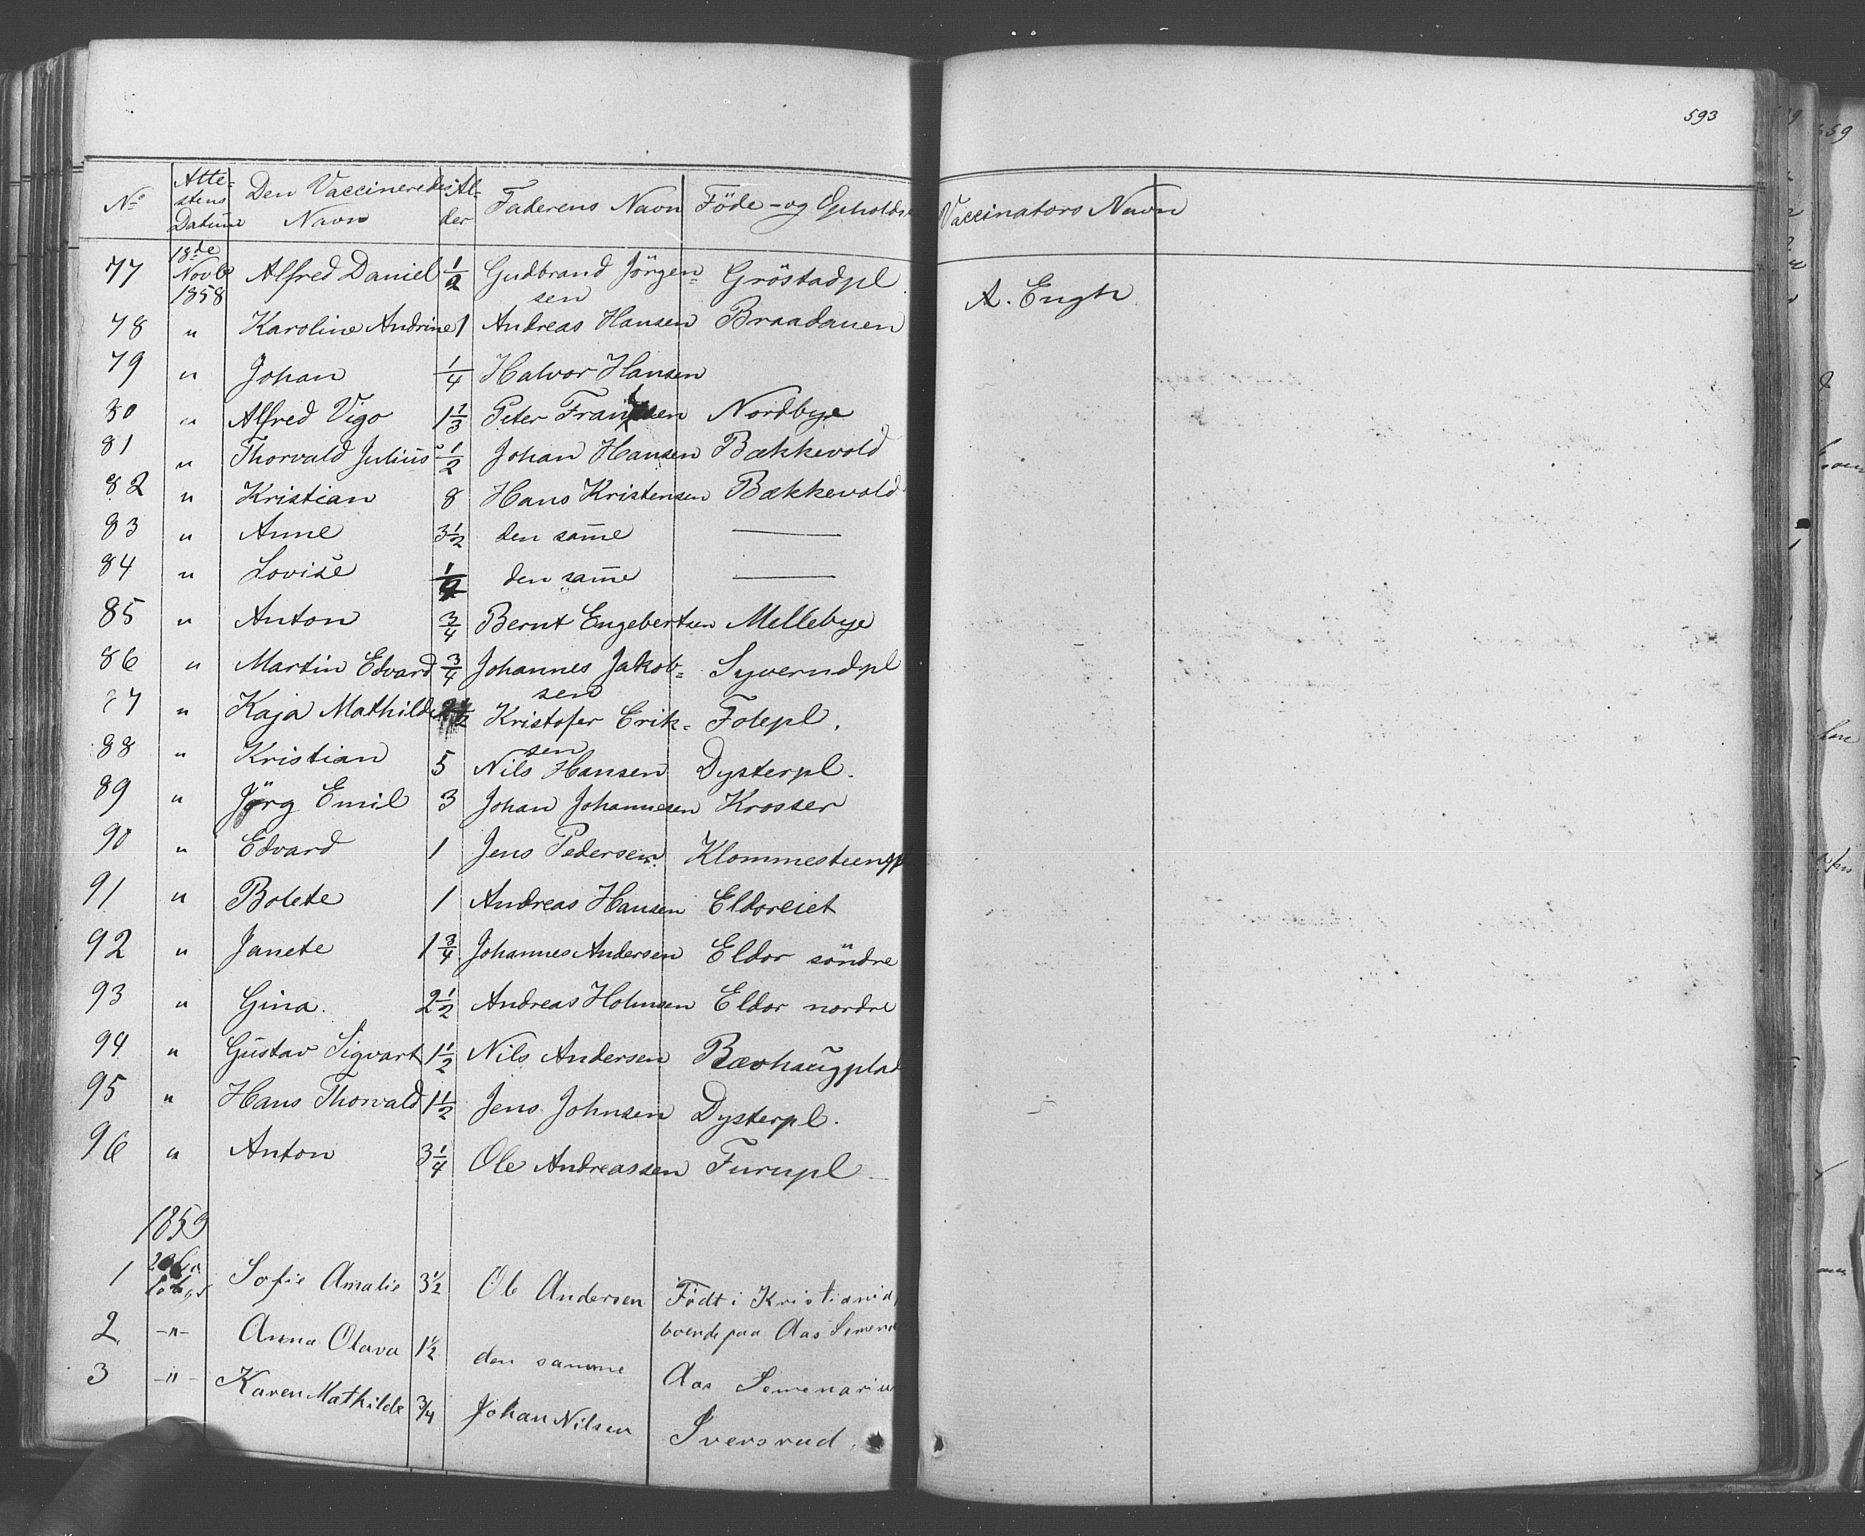 593
No Attestens Datum Den Vaccineredes Navn Alder Faderens Navn Föde- og Opholds Vaccinators Navn
77 18de Novb 1858 Alfred Daniel 1/2 Gudbrand Jörgensen Gröstadpl. A. Engh
78 " Karoline Andrine 1 Andreas Hansen Braadauen
79 " Johan 1/4 Halvor Hansen
80 " Alfred Vigo 1 1/3 Peter Nordbye
81 " Thorvald Julius 1/2 Johan Hansen Bækkevold
82 " Kristian 8 Hans Kristensen Bækkevold
83 " Anne 3 1/2 den samme —
84 " Lovise den samme —
85 " Anton 3/4 Bernt Engebertsen Mellebye
86 " Martin Edvard 3/4 Johannes Jakob=sen Syverudpl
87 " Kaja Mathilde Kristofer Erik=sen Folepl.
88 " Kristian 5 Nils Hansen Dysterpl.
89 " Jörg Emil 3 Johan Johannesen Krosser
90 " Edvard 1 Jens Pedersen Klommesteenpl
91 " Bolete 1 Andreas Hansen Eldoreiet
92 " Janete 1 3/4 Johannes Andersen Eldor söndre
93 " Gina. 2 1/2 Andreas Holmsen Eldor nordre
94 " Gustav Sigvart 1 1/2 Nils Andersen
95 " Hans Thorvald 1 1/2 Jens Johnsen Dysterpl.
96 " Anton 3 1/4 Ole Andreassen Furupl
1859
1 Sofie Amalie 3 1/2 Ole Andersen Födt i Kristiania
boende paa Aas
2 -"- Anna Olava 1 1/2 den samme Aas
3 -"- Karen Mathilde 3/4 Johan Nilsen Iversrud.